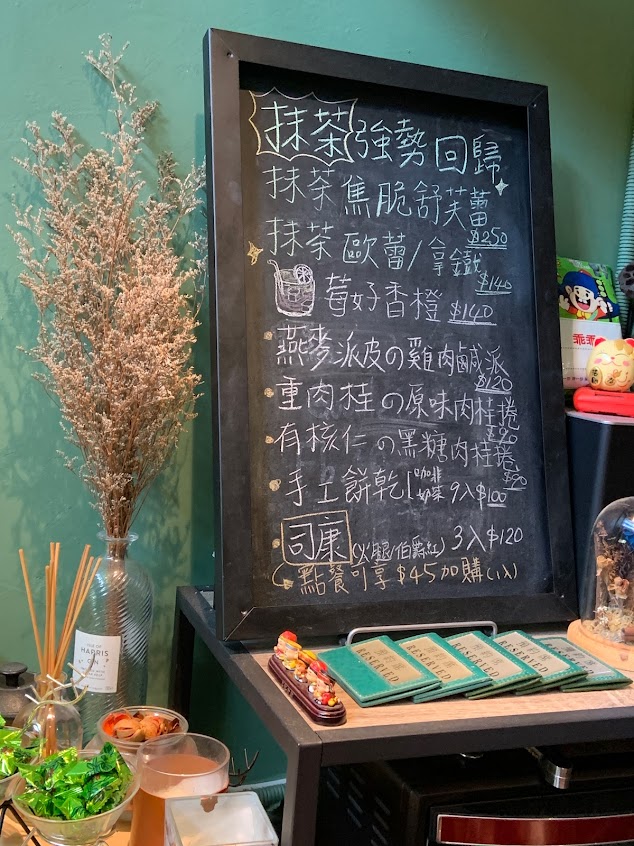 抹茶強勢回歸
抹茶焦脆舒芙蕾
$250
抹茶歐蕾/拿鐵
$140
莓好香橙 $140
燕麥派皮の雞肉鹹派
$120
重肉桂の原味肉桂捲
有核仁の黑糖肉桂捲
$90
手工餅乾 咖啡 奶茶 9入$100
司康(火腿/伯爵紅) 3入$120
點餐可享$45加購(1入)
乖乖
RESERVED
RESERVED
RESERVED
RESERVED
ISLE OF
HARRIS
GIN